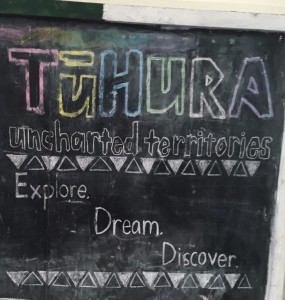 TūHURA
uncharted territories
Explore.
Dream.
Discover.